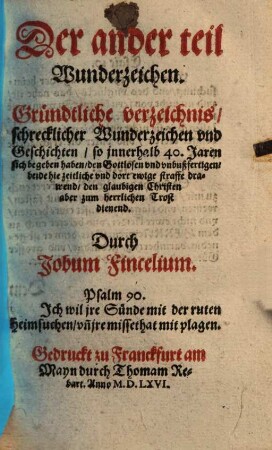 Der ander teil
Wunderzeichen.
Gründtliche verzeichnis/
schrecklicher Wunderzeichen vnd
Geschichten / so innerhalb 40. Jaren
sich begeben haben/den Gottlosen vnd vnbußfertigen/
beide hie zeitliche vnd dort ewige straffe dra-
wend/ den glaubigen Christen
aber zum herrlichen Trost
dienend.
Durch
Jobum Fincelium.
Psalm 90.
Ich wil jre Sünde mit der ruten
heimsuchen/vn̄ jre missethat mit plagen.
Gedruckt zu Franckfurt am
Mayn durch Thomam Re-
bart. Anno M.D.LXVI.